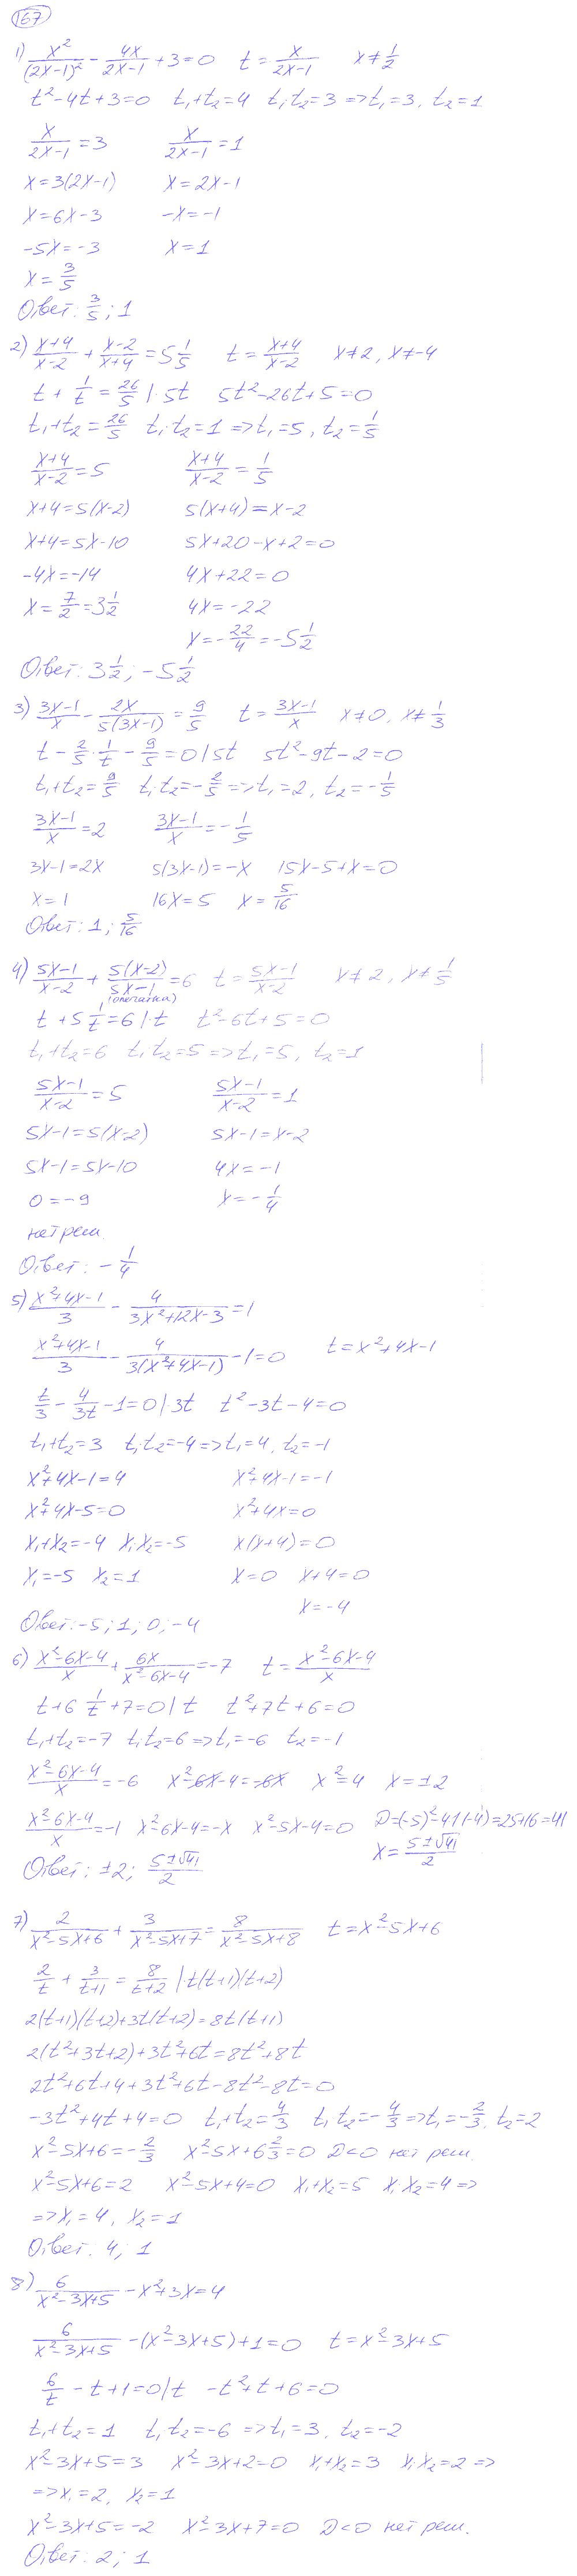 167
1) x²/(2x-1)² - 4x/(2x-1) + 3 = 0   t = x/(2x-1)   x ≠ 1/2
t² - 4t + 3 = 0   t₁+t₂ = 4   t₁t₂ = 3 => t₁ = 3, t₂ = 1
x/(2x-1) = 3   x/(2x-1) = 1
x = 3(2x-1)   x = 2x-1
x = 6x-3   -x = -1
-5x = -3   x = 1
x = 3/5
Ответ: 3/5; 1
2) (x+4)/(x-2) + (x-2)/(x+4) = 5 1/5   t = (x+4)/(x-2)   x ≠ 2, x ≠ -4
t + 1/t = 26/5 |·5t   5t² - 26t + 5 = 0
t₁+t₂ = 26/5   t₁·t₂ = 1 => t₁ = 5, t₂ = 1/5
(x+4)/(x-2) = 5   (x+4)/(x-2) = 1/5
x+4 = 5(x-2)   5(x+4) = x-2
x+4 = 5x-10   5x+20-x+2 = 0
-4x = -14   4x+22 = 0
x = 7/2 = 3 1/2   4x = -22
x = -22/4 = -5 1/2
Ответ: 3 1/2; -5 1/2
3) (3x-1)/x - 2x/(5(3x-1)) = 9/5   t = (3x-1)/x   x ≠ 0, x ≠ 1/3
t - 2/5 · 1/t - 9/5 = 0 | 5t   5t² - 9t - 2 = 0
t₁+t₂ = 9/5   t₁t₂ = -2/5 => t₁ = 2, t₂ = -1/5
(3x-1)/x = 2   (3x-1)/x = -1/5
3x-1 = 2x   5(3x-1) = -x   15x-5+x = 0
x = 1   16x = 5   x = 5/16
Ответ: 1; 5/16
4) (5x-1)/(x-2) + 5(x-2)/(5x-1) = 6   t = (5x-1)/(x-2)   x ≠ 2, x ≠ 1/5
(опечатка)
t + 5 1/t = 6 |·t   t² - 6t + 5 = 0
t₁+t₂ = 6   t₁t₂ = 5 => t₁ = 5, t₂ = 1
(5x-1)/(x-2) = 5   (5x-1)/(x-2) = 1
5x-1 = 5(x-2)   5x-1 = x-2
5x-1 = 5x-10   4x = -1
0 = -9   x = -1/4
нет реш.
Ответ: -1/4
5) (x²+4x-1)/3 - 4/(3x²+12x-3) = 1
(x²+4x-1)/3 - 4/(3(x²+4x-1)) - 1 = 0   t = x²+4x-1
t/3 - 4/3t - 1 = 0 |·3t   t² - 3t - 4 = 0
t₁+t₂ = 3   t₁·t₂ = -4 => t₁ = 4, t₂ = -1
x²+4x-1 = 4   x²+4x-1 = -1
x²+4x-5 = 0   x²+4x = 0
x₁+x₂ = -4   x₁x₂ = -5   x(x+4) = 0
x₁ = -5   x₂ = 1   x = 0   x+4 = 0
x = -4
Ответ: -5; 1; 0; -4
6) (x²-6x-4)/x + 6x/(x²-6x-4) = -7   t = (x²-6x-4)/x
t + 6 1/t + 7 = 0 | t   t² + 7t + 6 = 0
t₁+t₂ = -7   t₁t₂ = 6 => t₁ = -6   t₂ = -1
(x²-6x-4)/x = -6   x²-6x-4 = -6x   x² = 4   x = ±2
(x²-6x-4)/x = -1   x²-6x-4 = -x   x²-5x-4 = 0   D = (-5)²-4·1·(-4) = 25+16 = 41
x = (5±√41)/2
Ответ: ±2; (5±√41)/2
7) 2/(x²-5x+6) + 3/(x²-5x+7) = 8/(x²-5x+8)   t = x²-5x+6
2/t + 3/(t+1) = 8/(t+2) |·t(t+1)(t+2)
2(t+1)(t+2)+3t(t+2) = 8t(t+1)
2(t²+3t+2)+3t²+6t = 8t²+8t
2t²+6t+4+3t²+6t-8t²-8t = 0
-3t²+4t+4 = 0   t₁+t₂ = 4/3   t₁·t₂ = -4/3 => t₁ = -2/3, t₂ = 2
x²-5x+6 = -2/3   x²-5x+6 2/3 = 0   D<0 нет реш.
x²-5x+6 = 2   x²-5x+4 = 0   x₁+x₂ = 5   x₁x₂ = 4 =>
=> x₁ = 4, x₂ = 1
Ответ: 4; 1
8) 6/(x²-3x+5) - x²+3x = 4
6/(x²-3x+5) - (x²-3x+5)+1 = 0   t = x²-3x+5
6/t - t + 1 = 0 | t   -t²+t+6 = 0
t₁+t₂ = 1   t₁t₂ = -6 => t₁ = 3, t₂ = -2
x²-3x+5 = 3   x²-3x+2 = 0   x₁+x₂ = 3   x₁·x₂ = 2 =>
=> x₁ = 2, x₂ = 1
x²-3x+5 = -2   x²-3x+7 = 0   D<0 нет реш.
Ответ: 2; 1